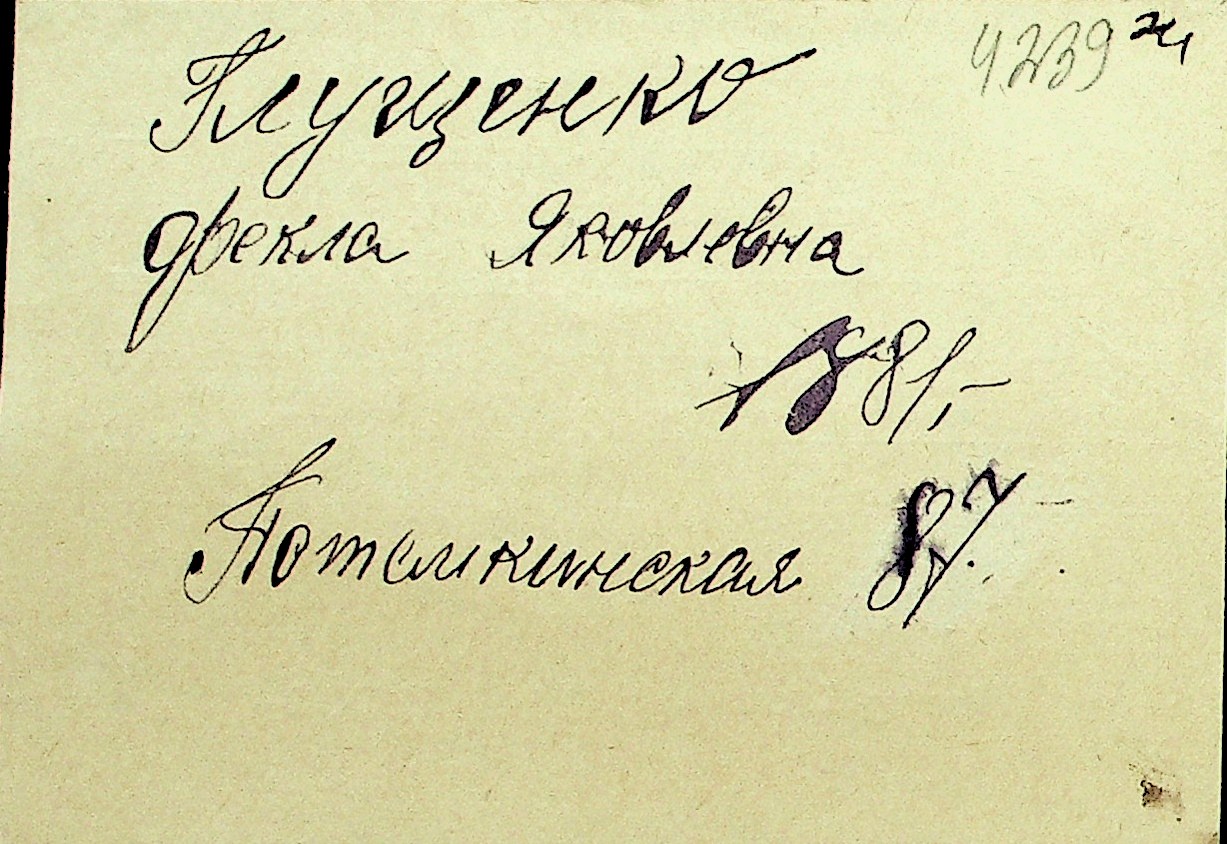 4239
Глущенко
Фекла Яковлевна
1881,-
Потемкинская 87.-